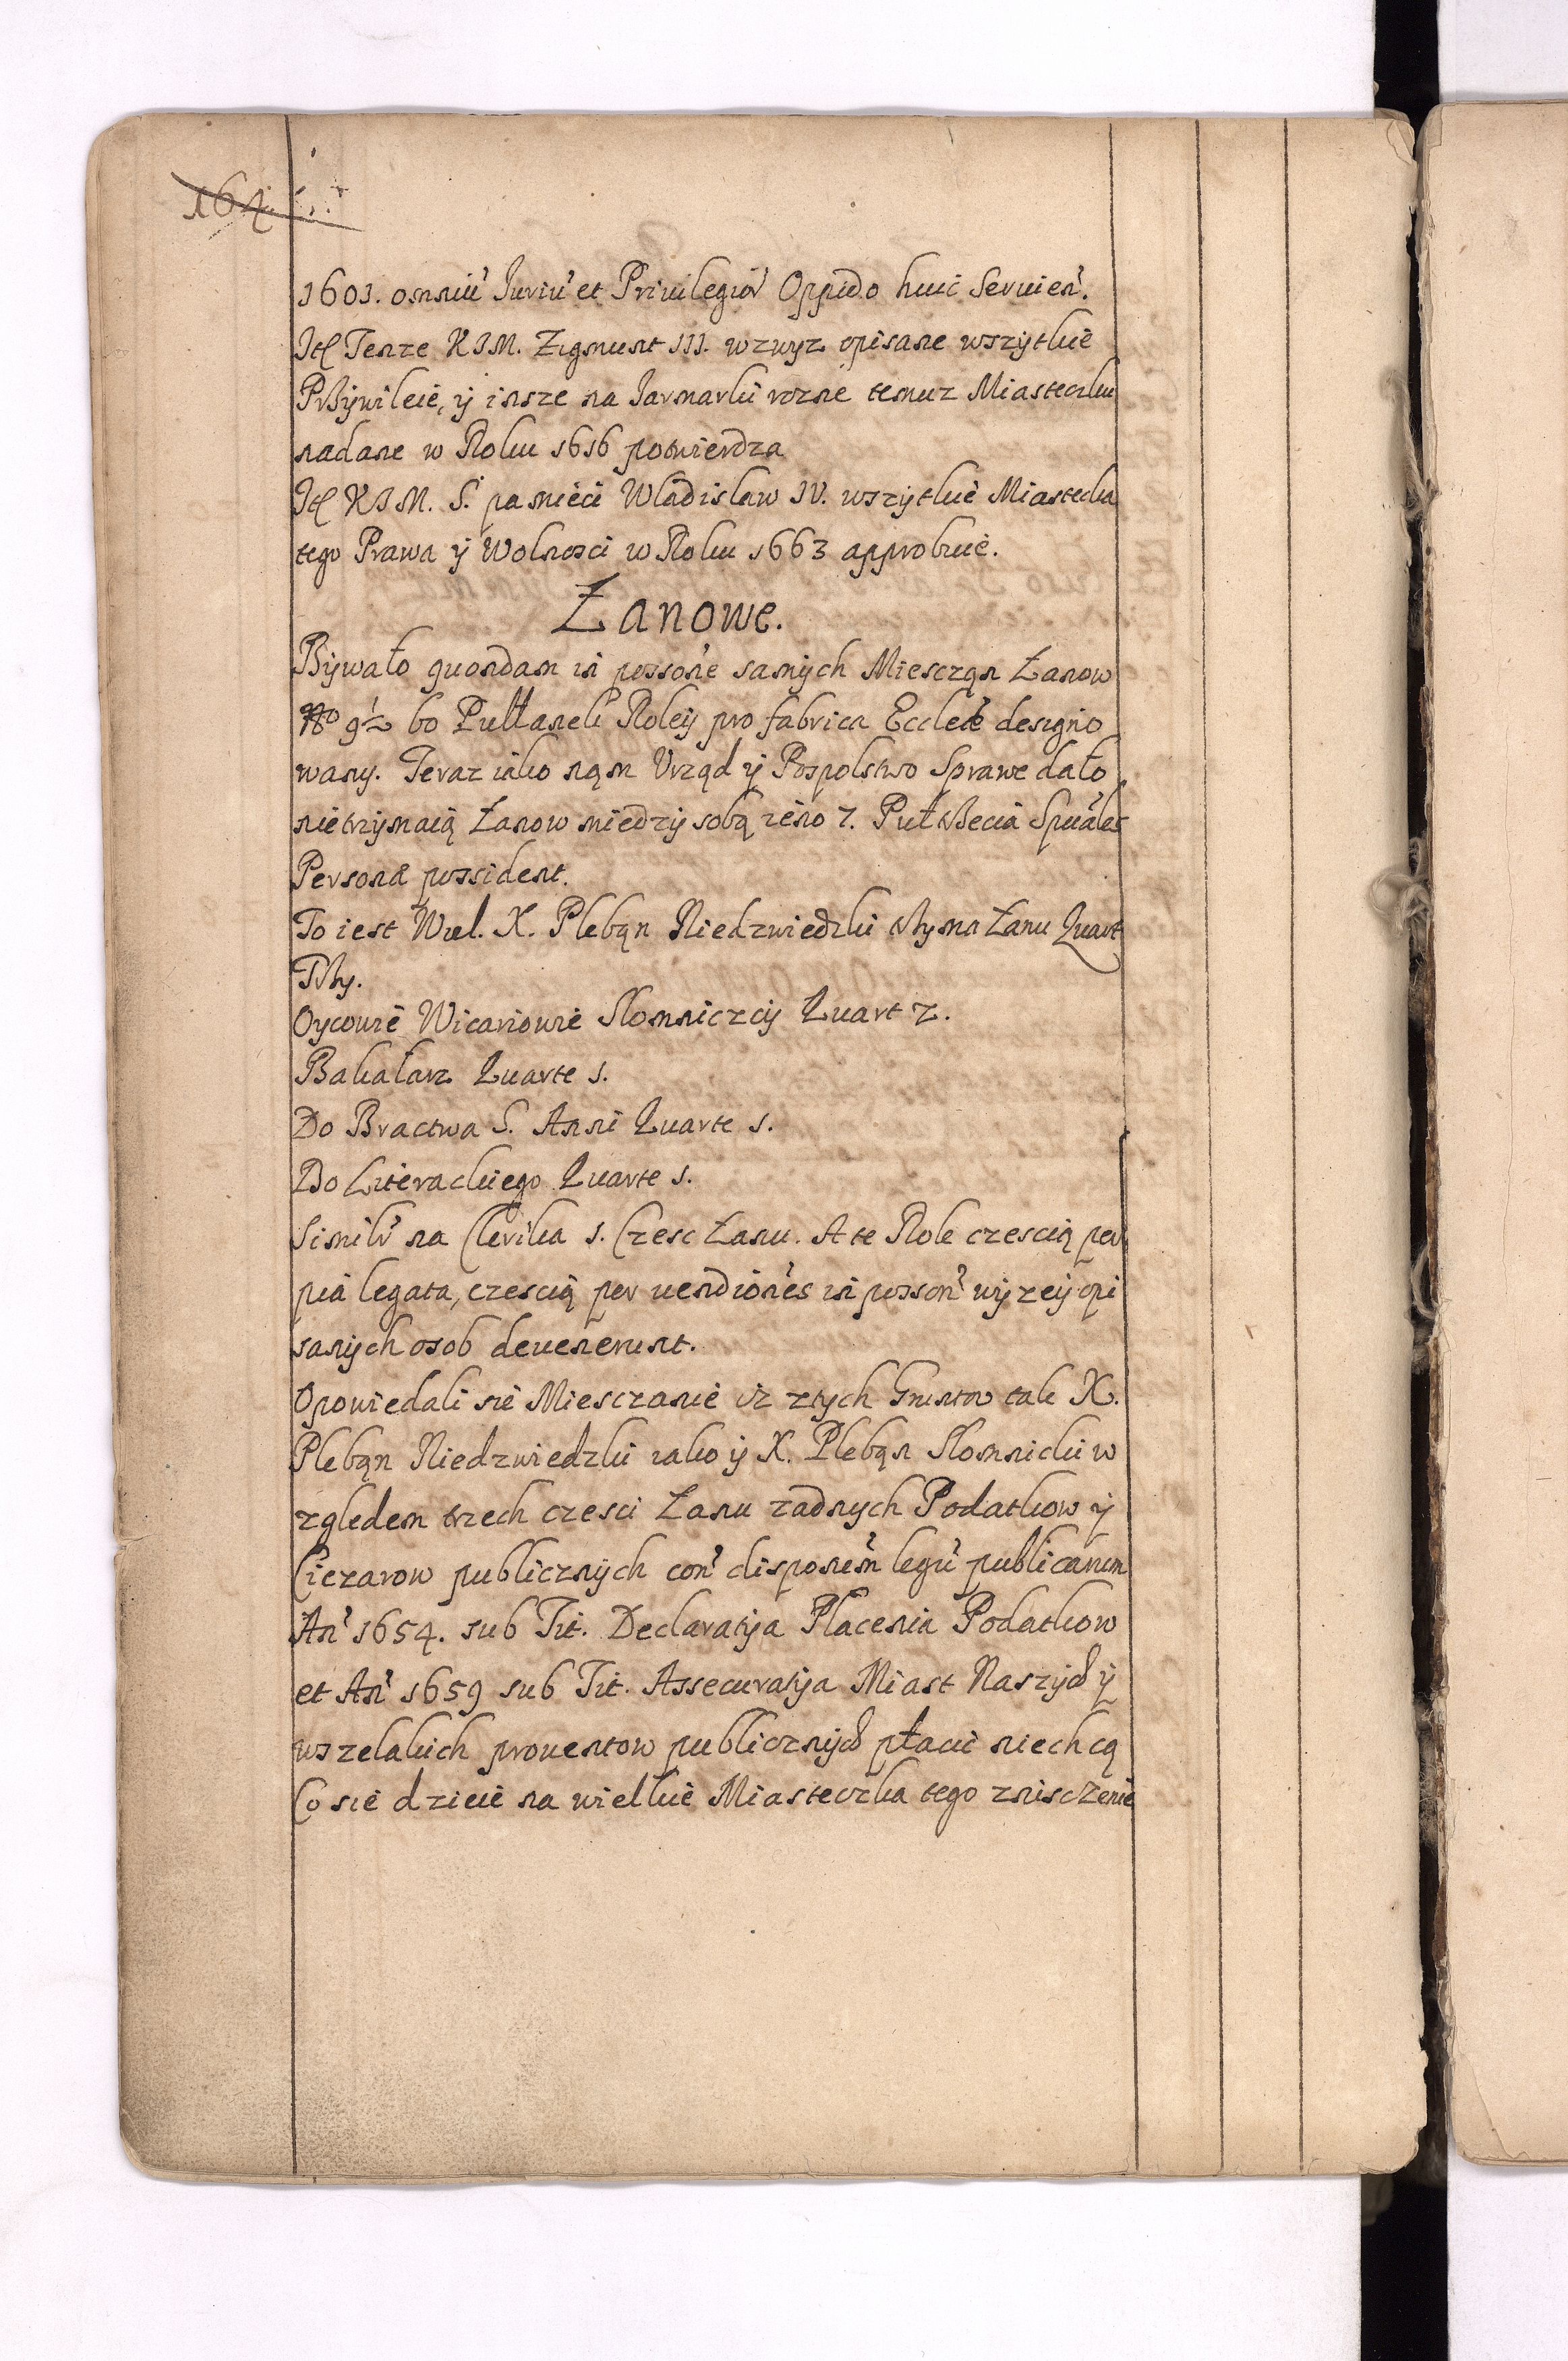 164.
1601. omniū Juriū et Privilegiōr Oppido huic Servien̄.
Itē Tenze KJM. Zigmunt III. wzwyz opisane wszytkie
Przywileie, ÿ insze na Jarmarki rozne temuz Miasteczku
nadane w Roku 1616 potwierdza
Itē KJM. S. pamieci Wladislaw IV. wszytkie Miastecka
tego Prawa ÿ Wolnosci w Roku 1663 approbuie.
Łanowe.
Bÿwało quondam in possone samÿch Miesczan Łanow
No 9½ bo Pułłanek Roleÿ pro fabrica Eccleæ designo
wanÿ. Teraz iako nąm Vrząd ÿ Pospolstwo Sprawe dało
nietrzÿmaią Łanow miedzÿ sobą ieno 7. Puł trzecia Spuales
Personæ possident.
To iest Wiel. X. Plebąn Niedzwiedzki trzyma Łanu Quart
Trzy.
Oycowie Wicariowie Słomniczcÿ Quart 2.
Bakałarz Quarte 1.
Do Bractwa S. Anni Quarte 1.
Do Literackiego Quarte 1.
Similr na Clerika 1. Czesc Łanu. A te Role czescią per
pia legata, czescią per uendiones in posson wÿzeÿ opi
sanÿch osob deuenerunt.
Opowiedali sie Miesczanie iz ztÿch Gruntow tak X.
Plebąn Niedzwiedzki iako ÿ X. Plebąn Slomnicki w
zgledem trzech czesci Łanu zadnÿch Podatkow ÿ
Ciezarow publicznÿch con disponem legū publicarum
An 1654. sub Tit. Declaratÿa Placenia Podatkow
et An 1659 sub Tit. Assecuratÿa Miast Naszÿch ÿ
wszelakich prouentow publicznÿch płacic niechcą
Co sie dzieie na wielkie Miasteczka tego znisczenie